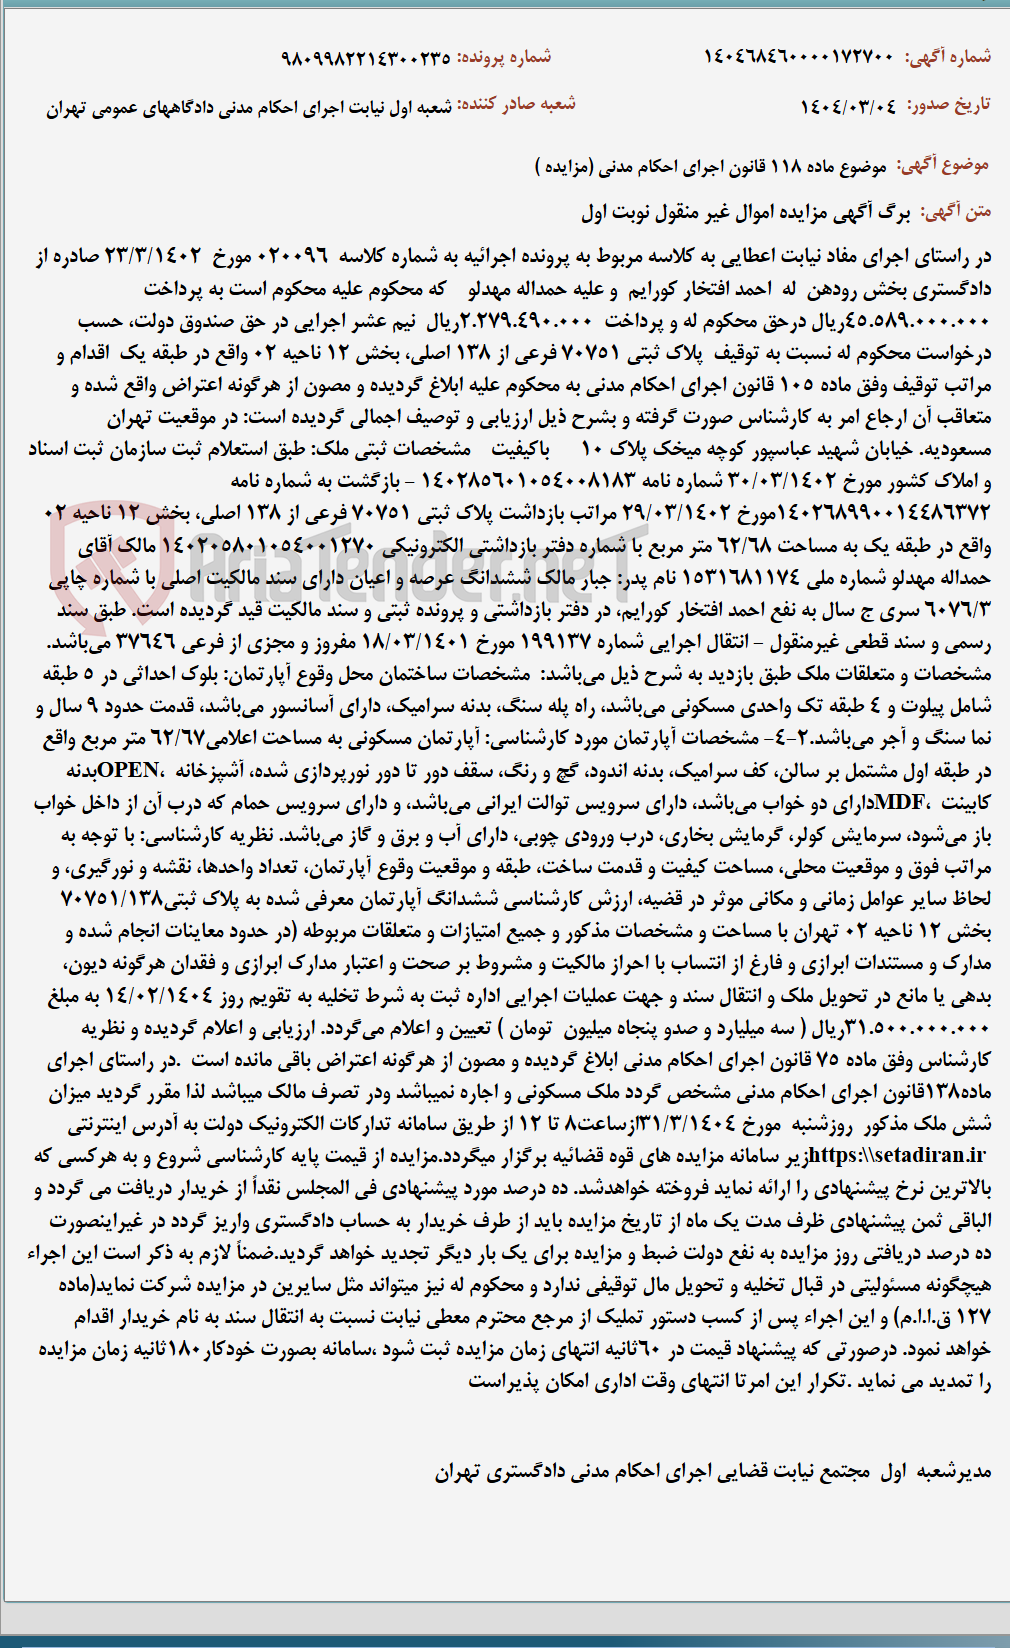 شماره آگهی: ۱۴۰۴۶۸۴۶۰۰۰۰۱۷۲۷۰۰ شماره پرونده: ۹۸۰۹۹۸۲۲۱۴۳۰۰۲۳۵
تاریخ صدور: ۱۴۰۴/۰۳/۰۴ شعبه صادر کننده: شعبه اول نیابت اجرای احکام مدنی دادگاههای عمومی تهران
موضوع آگهی: موضوع ماده ۱۱۸ قانون اجرای احکام مدنی (مزایده )
متن آگهی: برگ آگهی مزایده اموال غیر منقول نوبت اول
در راستای اجرای مفاد نیابت اعطایی به کلاسه مربوط به پرونده اجرائیه به شماره کلاسه ۰۲۰۰۹۶ مورخ ۲۳/۳/۱۴۰۲ صادره از
دادگستری بخش رودهن له احمد افتخار کورایم و علیه حمداله مهدلو که محکوم علیه محکوم است به پرداخت
۴۵.۵۸۹.۰۰۰.۰۰۰ریال درحق محکوم له و پرداخت ۲.۲۷۹.۴۹۰.۰۰۰ریال نیم عشر اجرایی در حق صندوق دولت، حسب
درخواست محکوم له نسبت به توقیف پلاک ثبتی ۷۰۷۵۱ فرعی از ۱۳۸ اصلی، بخش ۱۲ ناحیه ۰۲ واقع در طبقه یک اقدام و
مراتب توقیف وفق ماده ۱۰۵ قانون اجرای احکام مدنی به محکوم علیه ابلاغ گردیده و مصون از هرگونه اعتراض واقع شده و
متعاقب آن ارجاع امر به کارشناس صورت گرفته و بشرح ذیل ارزیابی و توصیف اجمالی گردیده است: در موقعیت تهران
مسعودیه. خیابان شهید عباسپور کوچه میخک پلاک ۱۰ باکیفیت مشخصات ثبتی ملک: طبق استعلام ثبت سازمان ثبت اسناد
و املاک کشور مورخ ۳۰/۰۳/۱۴۰۲ شماره نامه ۱۴۰۲۸۵۶۰۱۰۵۴۰۰۸۱۸۳ – بازگشت به شماره نامه
۱۴۰۲۶۸۹۹۰۰۱۴۴۸۶۳۷۲مورخ ۲۹/۰۳/۱۴۰۲ مراتب بازداشت پلاک ثبتی ۷۰۷۵۱ فرعی از ۱۳۸ اصلی، بخش ۱۲ ناحیه ۰۲
واقع در طبقه یک به مساحت ۶۲/۶۸ متر مربع با شماره دفتر بازداشتی الکترونیکی ۱۴۰۲۰۵۸۰۱۰۵۴۰۰۱۲۷۰ مالک آقای
حمداله مهدلو شماره ملی ۱۵۳۱۶۸۱۱۷۴ نام پدر: جبار مالک ششدانگ عرصه و اعیان دارای سند مالکیت اصلی با شماره چاپی
۶۰۷۶/۳ سری ج سال به نفع احمد افتخار کورایم، در دفتر بازداشتی و پرونده ثبتی و سند مالکیت قید گردیده است. طبق سند
رسمی و سند قطعی غیرمنقول – انتقال اجرایی شماره ۱۹۹۱۳۷ مورخ ۱۸/۰۳/۱۴۰۱ مفروز و مجزی از فرعی ۳۷۶۴۶ می‌باشد.
مشخصات و متعلقات ملک طبق بازدید به شرح ذیل می‌باشد: مشخصات ساختمان محل وقوع آپارتمان: بلوک احداثی در ۵ طبقه
شامل پیلوت و ۴ طبقه تک واحدی مسکونی می‌باشد، راه پله سنگ، بدنه سرامیک، دارای آسانسور می‌باشد، قدمت حدود ۹ سال و
نما سنگ و آجر می‌باشد.۲–۴– مشخصات آپارتمان مورد کارشناسی: آپارتمان مسکونی به مساحت اعلامی۶۲/۶۷ متر مربع واقع
در طبقه اول مشتمل بر سالن، کف سرامیک، بدنه اندود، گچ و رنگ، سقف دور تا دور نورپردازی شده، آشپزخانه OPEN، بدنه
کابینت MDF، دارای دو خواب می‌باشد، دارای سرویس توالت ایرانی می‌باشد، و دارای سرویس حمام که درب آن از داخل خواب
باز می‌شود، سرمایش کولر، گرمایش بخاری، درب ورودی چوبی، دارای آب و برق و گاز می‌باشد. نظریه کارشناسی: با توجه به
مراتب فوق و موقعیت محلی، مساحت کیفیت و قدمت ساخت، طبقه و موقعیت وقوع آپارتمان، تعداد واحدها، نقشه و نورگیری، و
لحاظ سایر عوامل زمانی و مکانی موثر در قضیه، ارزش کارشناسی ششدانگ آپارتمان معرفی شده به پلاک ثبتی۷۰۷۵۱/۱۳۸
بخش ۱۲ ناحیه ۰۲ تهران با مساحت و مشخصات مذکور و جمیع امتیازات و متعلقات مربوطه (در حدود معاینات انجام شده و
مدارک و مستندات ابرازی و فارغ از انتساب با احراز مالکیت و مشروط بر صحت و اعتبار مدارک ابرازی و فقدان هرگونه دیون،
بدهی یا مانع در تحویل ملک و انتقال سند و جهت عملیات اجرایی اداره ثبت به شرط تخلیه به تقویم روز ۱۴/۰۲/۱۴۰۴ به مبلغ
۳۱.۵۰۰.۰۰۰.۰۰۰ریال ( سه میلیارد و صدو پنجاه میلیون تومان ) تعیین و اعلام می‌گردد. ارزیابی و اعلام گردیده و نظریه
کارشناس وفق ماده ۷۵ قانون اجرای احکام مدنی ابلاغ گردیده و مصون از هرگونه اعتراض باقی مانده است .در راستای اجرای
ماده۱۳۸قانون اجرای احکام مدنی مشخص گردد ملک مسکونی و اجاره نمیباشد ودر تصرف مالک میباشد لذا مقرر گردید میزان
شش ملک مذکور روزشنبه مورخ ۳۱/۳/۱۴۰۴ازساعت۸ تا ۱۲ از طریق سامانه تدارکات الکترونیک دولت به آدرس اینترنتی
https:\\setadiran.irزیر سامانه مزایده های قوه قضائیه برگزار میگردد.مزایده از قیمت پایه کارشناسی شروع و به هرکسی که
بالاترین نرخ پیشنهادی را ارائه نماید فروخته خواهدشد. ده درصد مورد پیشنهادی فی المجلس نقداً از خریدار دریافت می گردد و
الباقی ثمن پیشنهادی ظرف مدت یک ماه از تاریخ مزایده باید از طرف خریدار به حساب دادگستری واریز گردد در غیراینصورت
ده درصد دریافتی روز مزایده به نفع دولت ضبط و مزایده برای یک بار دیگر تجدید خواهد گردید.ضمناً لازم به ذکر است این اجراء
هیچگونه مسئولیتی در قبال تخلیه و تحویل مال توقیفی ندارد و محکوم له نیز میتواند مثل سایرین در مزایده شرکت نماید(ماده
۱۲۷ ق.ا.ا.م) و این اجراء پس از کسب دستور تملیک از مرجع محترم معطی نیابت نسبت به انتقال سند به نام خریدار اقدام
خواهد نمود. درصورتی که پیشنهاد قیمت در ۶۰ثانیه انتهای زمان مزایده ثبت شود ،سامانه بصورت خودکار۱۸۰ثانیه زمان مزایده
را تمدید می نماید .تکرار این امرتا انتهای وقت اداری امکان پذیراست
مدیرشعبه اول مجتمع نیابت قضایی اجرای احکام مدنی دادگستری تهران
AriaTender.neT